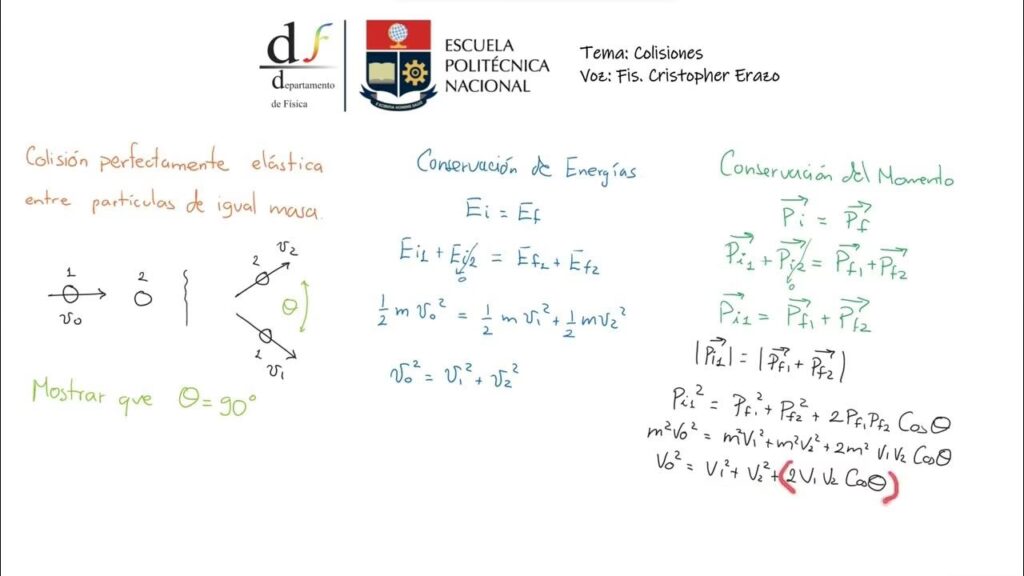 df
departamento
de Física
ESCUELA
POLITÉCNICA
NACIONAL
Tema: Colisiones
Voz: Fis. Cristopher Erazo
Colisión perfectamente elástica
entre partículas de igual masa.
1
2
v₀
2
v₂
θ
1
v₁
Mostrar que θ = 90°
Conservación de Energías
Ei = Ef
Ei1 + Ei2 = Ef1 + Ef2
0
1/2 m v₀² = 1/2 m v₁² + 1/2 m v₂²
v₀² = v₁² + v₂²
Conservación del Momento
P⃗i = P⃗f
P⃗i1 + P⃗i2 = P⃗f1 + P⃗f2
0
P⃗i1 = P⃗f1 + P⃗f2
|P⃗i1| = |P⃗f1 + P⃗f2|
Pi1² = Pf1² + Pf2² + 2Pf1Pf2 Cosθ
m²v₀² = m²v₁² + m²v₂² + 2m² v₁v₂ Cosθ
v₀² = v₁² + v₂² + (2v₁v₂ Cosθ)